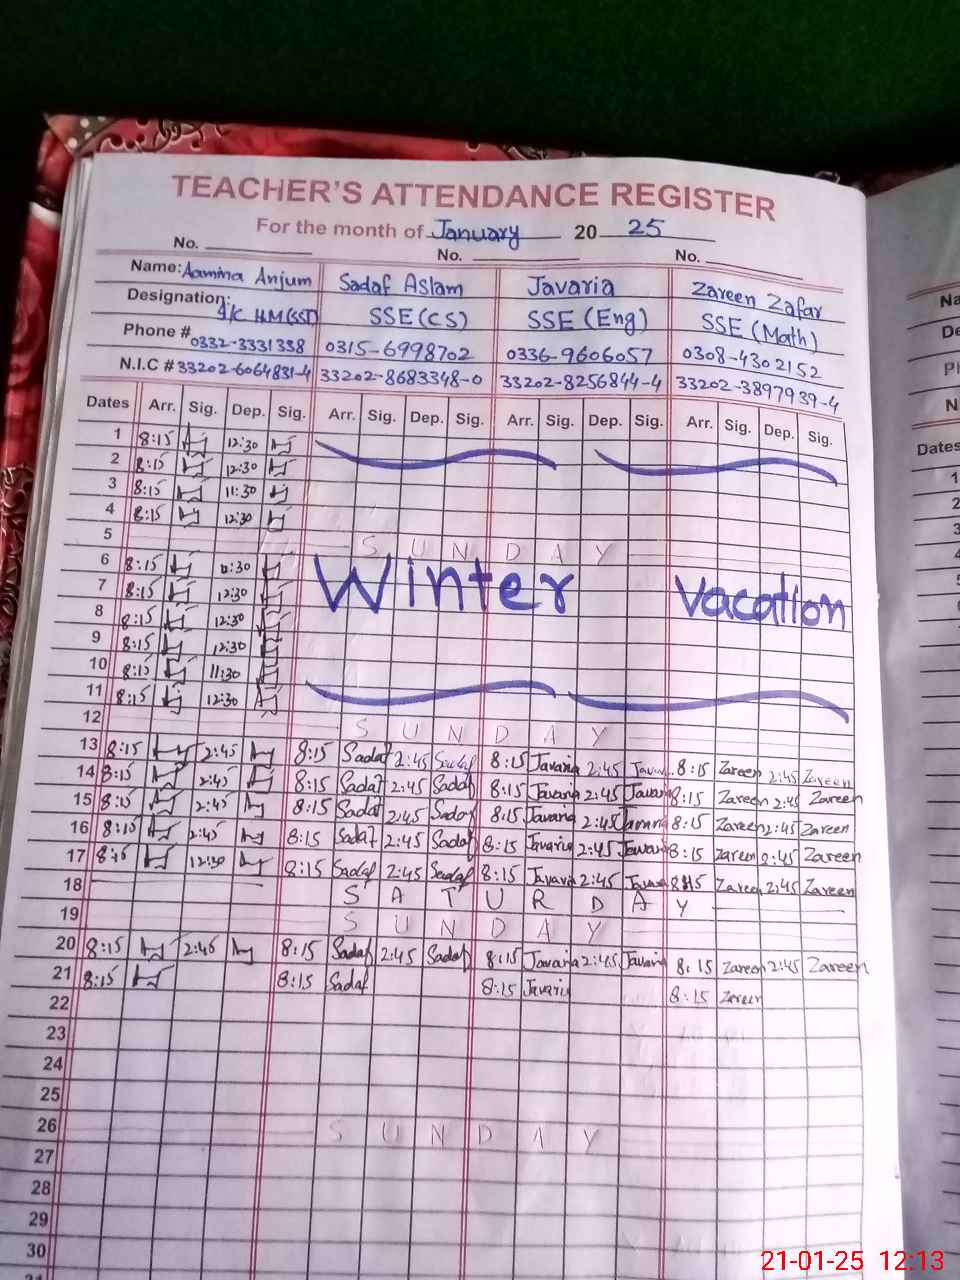 TEACHER'S ATTENDANCE REGISTER
For the month of January 2025
No. No. No.
Name: Aamina Anjum Sadaf Aslam Javaria Zareen Zafar
Designation: I/C HM(SST) SSE(CS) SSE(Eng) SSE(Math)
Phone # 0332-3331338 0315-6998702 0336-9606057 0308-4302152
N.I.C # 33202-6064831-4 33202-8683348-0 33202-8256844-4 33202-3897939-4
Dates Arr. Sig. Dep. Sig. Arr. Sig. Dep. Sig. Arr. Sig. Dep. Sig. Arr. Sig. Dep. Sig.
1 8:15 12:30
2 8:15 12:30
3 8:15 11:30
4 8:15 12:30
5 SUNDAY
6 8:15
7 8:15 12:30
Winter Vacation
8 8:15 12:30
9 8:15 12:30
10 8:15 11:30
11 8:15 12:30
12 SUNDAY
13 8:15 2:45 8:15 Sadaf 2:45 Sadaf 8:15 Javaria 2:45 8:15 Zareen 2:45 Zareen
14 8:15 2:45 8:15 Sadaf 2:45 Sadaf 8:15 Javaria 2:45 Javaria 8:15 Zareen 2:45 Zareen
15 8:15 2:45 8:15 Sadaf 2:45 Sadaf 8:15 Javaria 2:45 Javaria 8:15 Zareen 2:45 Zareen
16 8:15 2:45 8:15 Sadaf 2:45 Sadaf 8:15 Javaria 2:45 Javaria 8:15 Zareen 2:45 Zareen
17 8:15 12:30 8:15 Sadaf 2:45 Sadaf 8:15 Javaria 2:45 Javaria 8:15 Zareen 2:45 Zareen
18 SATURDAY
19 SUNDAY
20 8:15 2:45 8:15 Sadaf 2:45 Sadaf 8:15 Javaria 2:45 Javaria 8:15 Zareen 2:45 Zareen
21 8:15 8:15 Sadaf 8:15 Javaria 8:15 Zareen
22
23
24
25
26 SUNDAY
27
28
29
30
21-01-25 12:13